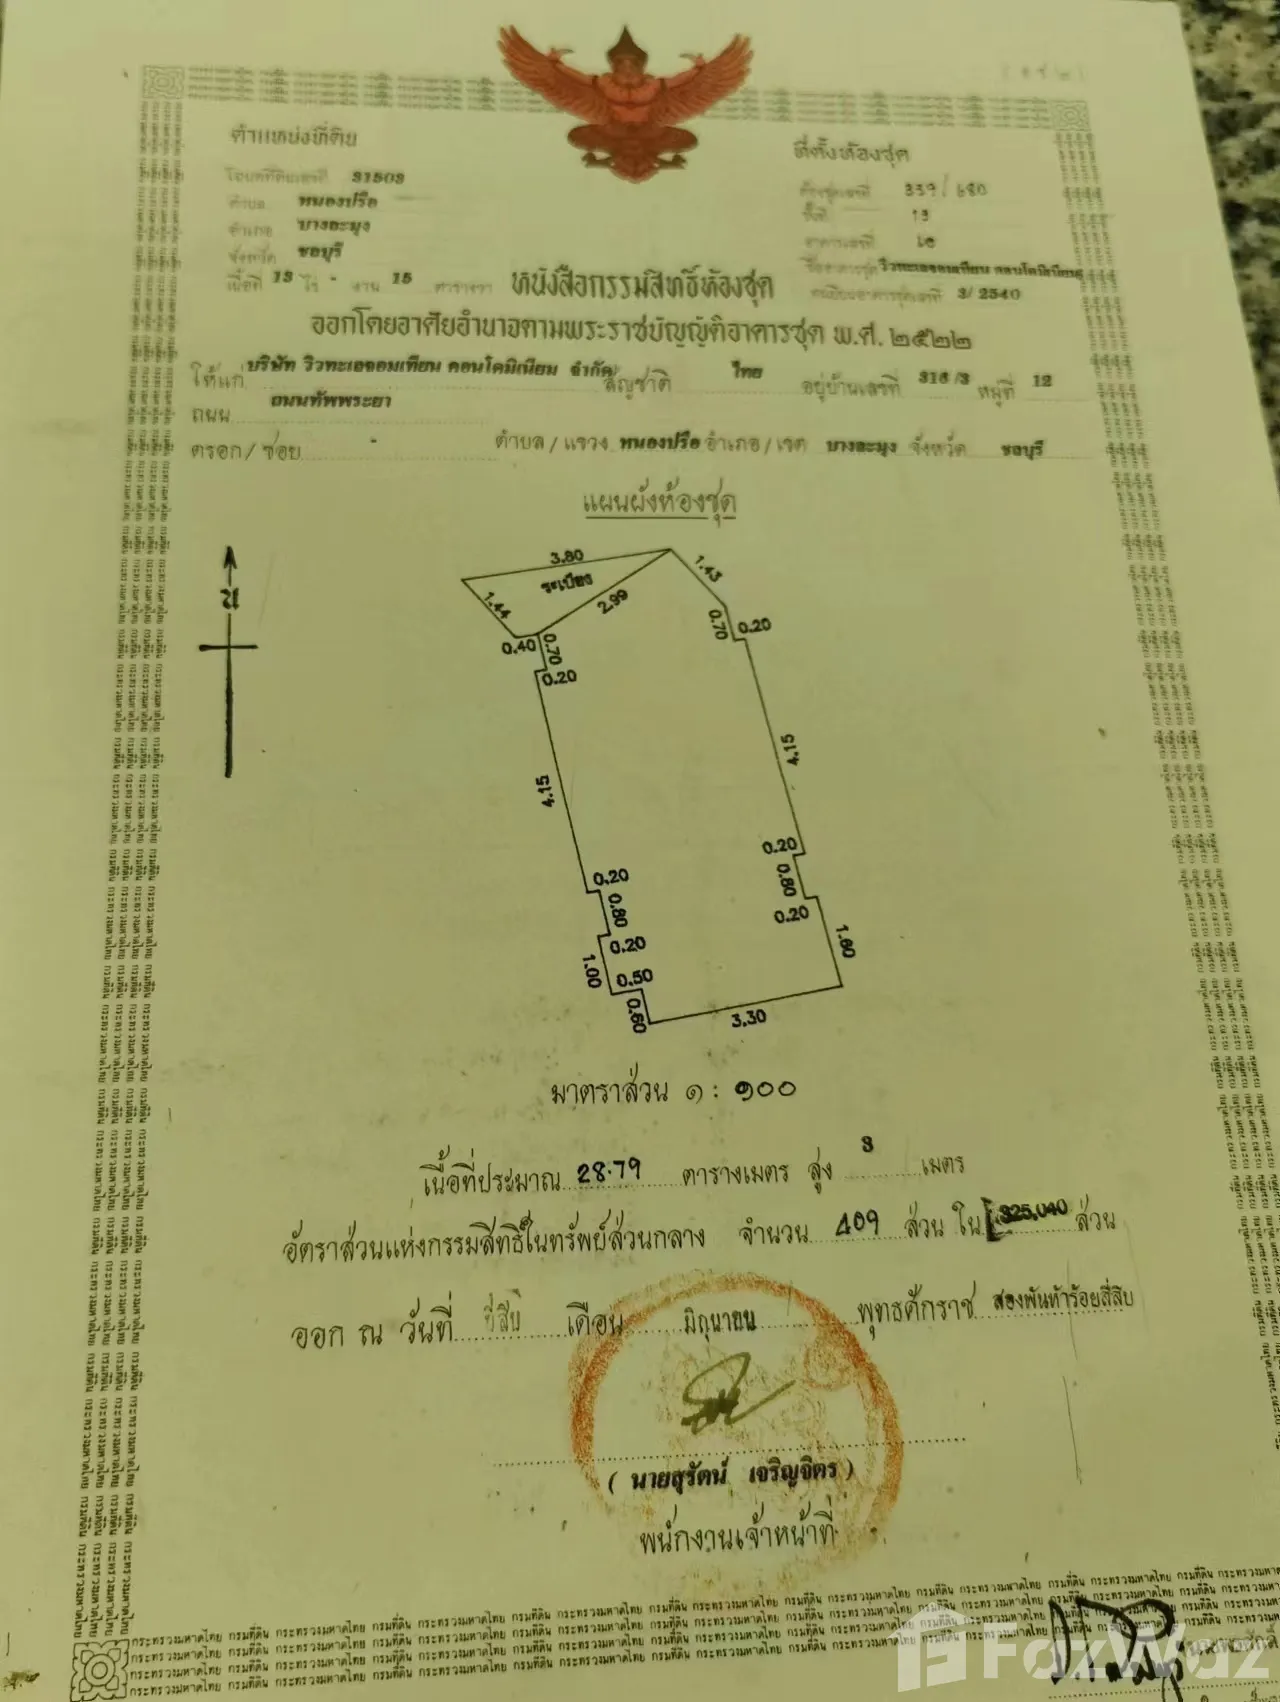 (อ.ช.๒)
ตำแหน่งที่ดิน
ที่ตั้งห้องชุด
โฉนดที่ดินเลขที่ 31503
ห้องชุดเลขที่ 339/680
ตำบล หนองปรือ
ชั้นที่ 13
อำเภอ บางละมุง
อาคารเลขที่
จังหวัด ชลบุรี
ชื่ออาคารชุด วิวทะเลจอมเทียน คอนโดมิเนียม
เนื้อที่ 13 ไร่ - งาน 15 ตารางวา
หนังสือกรรมสิทธิ์ห้องชุด
ทะเบียนอาคารชุดเลขที่ 3/2540
ออกโดยอาศัยอำนาจตามพระราชบัญญัติอาคารชุด พ.ศ. ๒๕๒๒
ให้แก่ บริษัท วิวทะเลจอมเทียน คอนโดมิเนียม จำกัด สัญชาติ ไทย อยู่บ้านเลขที่ 316/3 หมู่ที่ 12
ถนน ถนนทัพพระยา
ตรอก/ซอย - ตำบล/แขวง หนองปรือ อำเภอ/เขต บางละมุง จังหวัด ชลบุรี
แผนผังห้องชุด
น
3.80
ระเบียง
1.44
2.99
1.43
0.70
0.20
0.40
0.70
0.20
4.15
4.15
0.20
0.80
0.20
0.20
0.80
0.20
1.00
0.50
0.60
1.60
3.30
มาตราส่วน ๑ : ๑๐๐
เนื้อที่ประมาณ 28.79 ตารางเมตร สูง 3 เมตร
อัตราส่วนแห่งกรรมสิทธิ์ในทรัพย์ส่วนกลาง จำนวน 409 ส่วน ใน 325,040 ส่วน
ออก ณ วันที่ ยี่สิบ เดือน มิถุนายน พุทธศักราช สองพันห้าร้อยสี่สิบ
( นายสุรัตน์ เจริญจิตร )
พนักงานเจ้าหน้าที่
กระทรวงมหาดไทย กรมที่ดิน กระทรวงมหาดไทย กรมที่ดิน กระทรวงมหาดไทย กรมที่ดิน
FazWaz